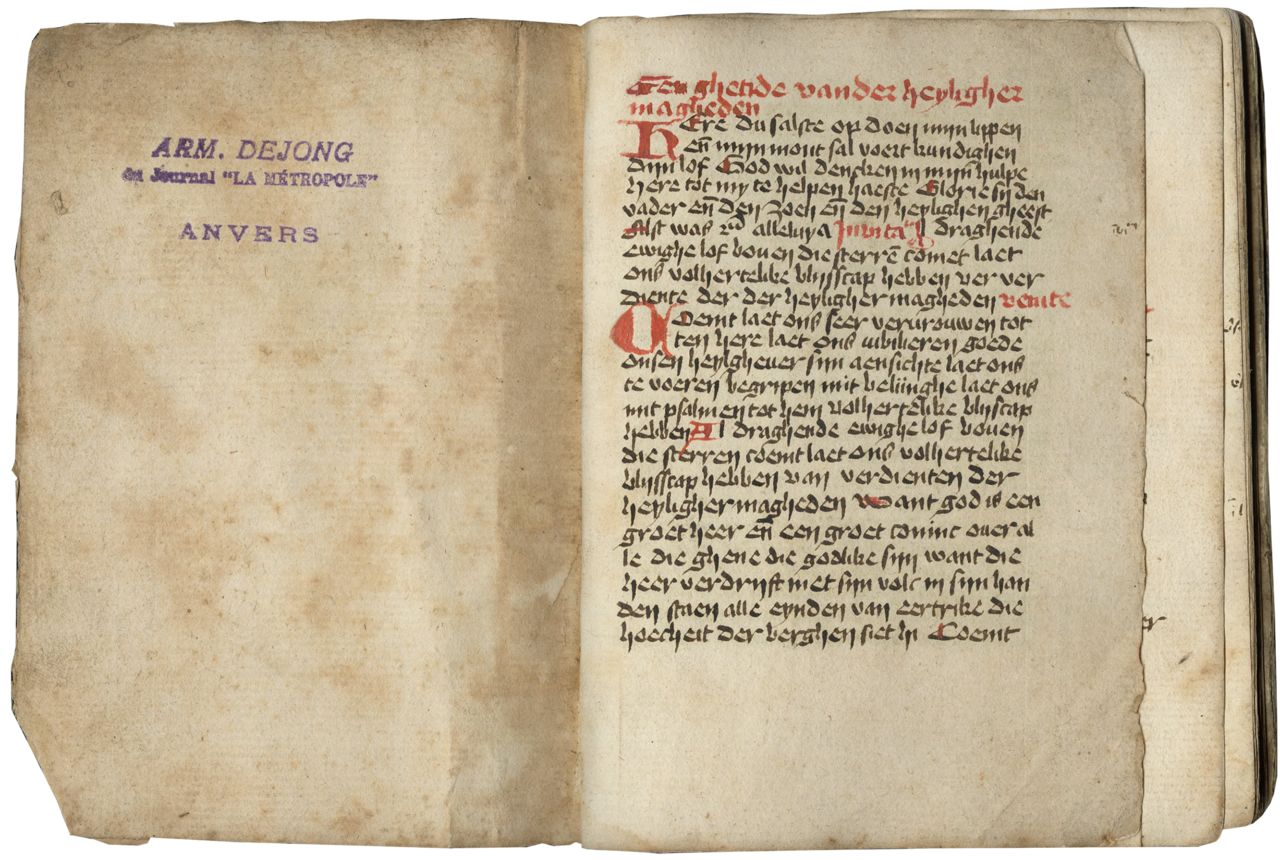 ARM. DEJONG
du Journal "LA MÉTROPOLE"
ANVERS
ghetide vander heyligher
magheden
HEre du salste op doen mijn lippen
eñ mijn mont sal voert kundighen
dijn lof God wil dencken in mijn hulpe
here tot my te helpen haeste Glorie sij den
vader eñ den zoen eñ den heylighen gheest
Alst was alleluya Invita Al draghende
ewighe lof boven die sterrē comet laet
ons volhertelike blijsscap hebben ver ver
diente der der heyligher magheden venite
COemt laet ons seer vervrouwen tot
ten here laet ons iubilieren goede
onsen heylghever sijn aensichte laet ons
te voeren begripen mit beliinghe laet ons
mit psalmen tot hem volhertelike blijscap
hebben Al draghende ewighe lof boven
die sterren coemt laet ons volhertelike
blijsscap hebben van verdienten der
heyligher magheden Want god is een
groet heer eñ een groet coninc over al
le die ghene die godlike sijn want die
heer verdrijft niet sijn volc in sijn han
den staen alle eynden van eertrike die
hoecheit der berghen siet hi Coemt